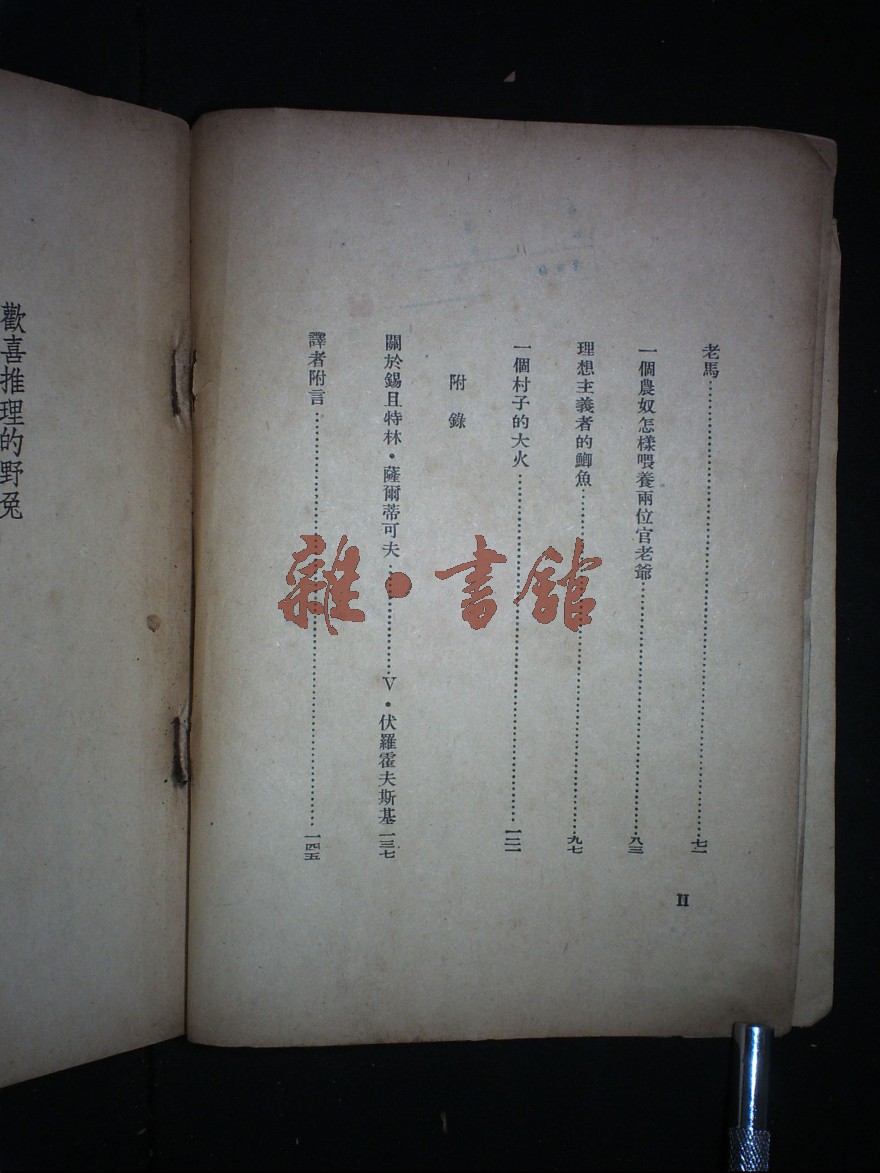 老馬……………………七一
一個農奴怎樣喂養兩位官老爺……………………八三
理想主義者的鯽魚……………………九七
一個村子的大火……………………一二一
附錄
關於錫且特林・薩爾蒂可夫……………V・伏羅霍夫斯基一三七
譯者附言……………………一四五
II
歡喜推理的野兔
雜・書館